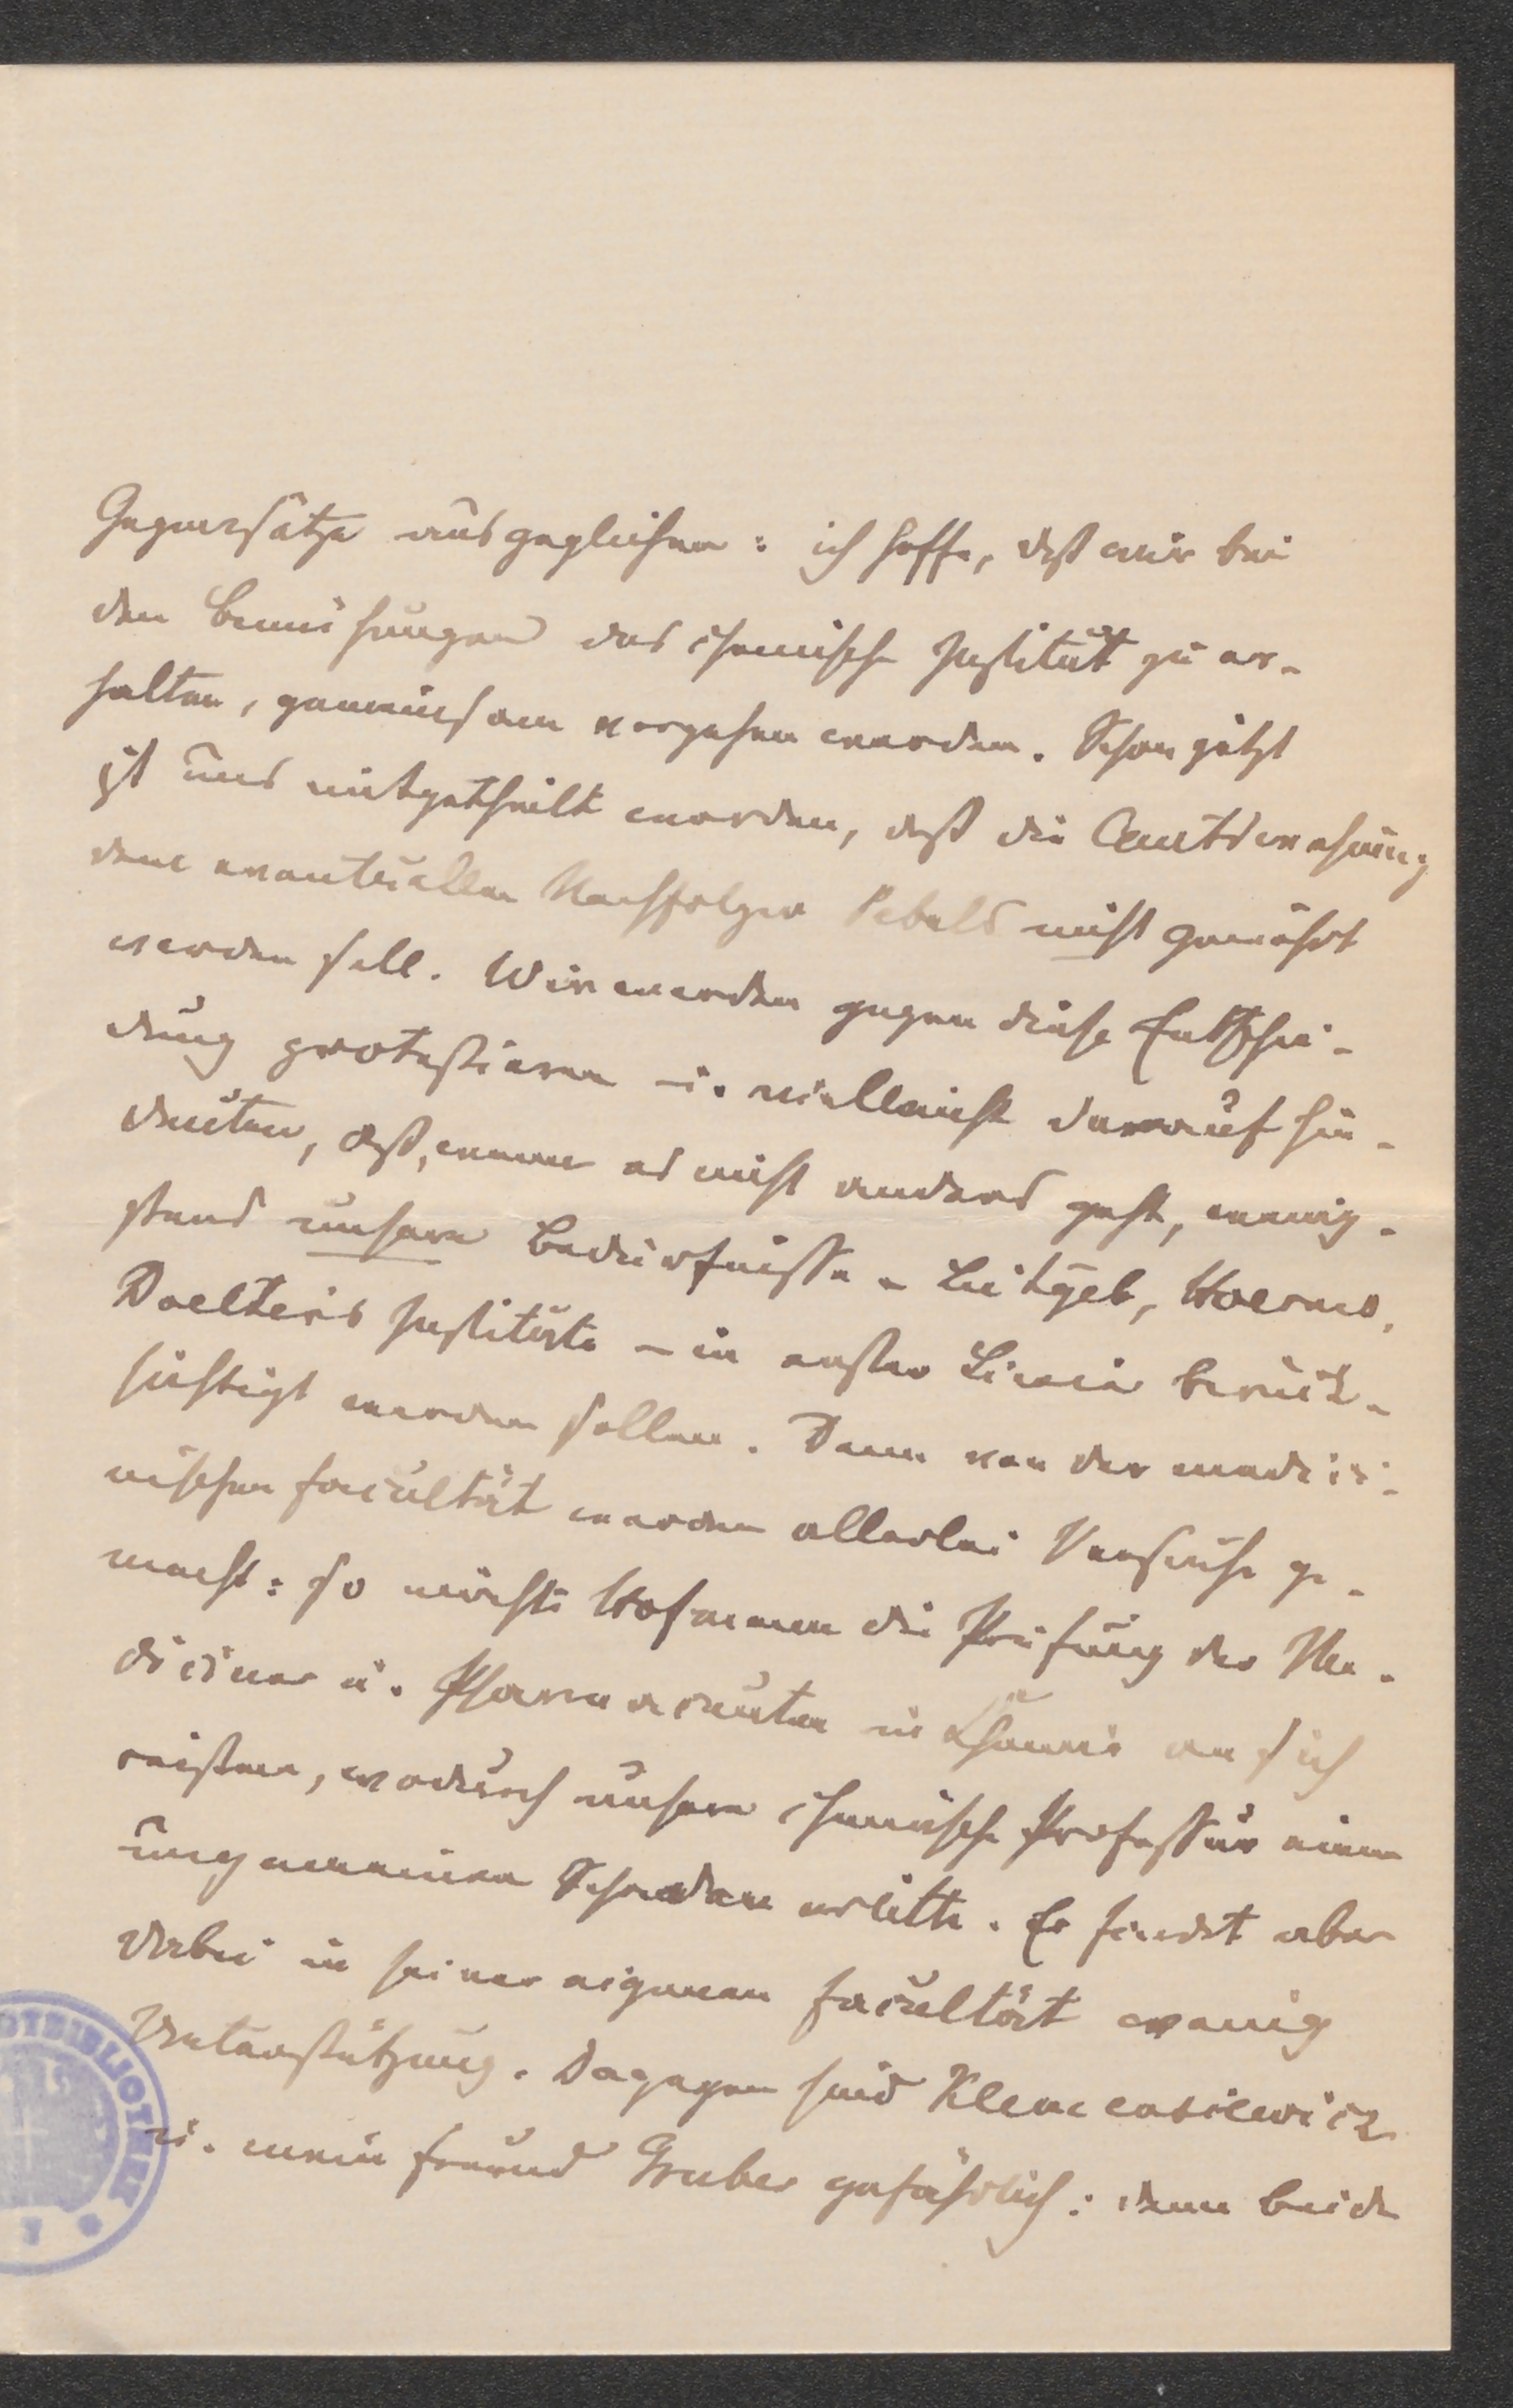 Gegensätze ausgeglichen: ich hoffe, daß wir bei
den Bemühungen das chemische Institut zu er-
halten, gemeinsam vorgehen werden. Schon jetzt
ist uns mitgetheilt worden, daß die Amtswohnung
dem eventuellen Nachfolger Pebals nicht gewährt
werden soll. Wir werden gegen diese Entschei-
dung protestieren u. vielleicht darauf hin-
deuten, daß, wenn es nicht anders geht, wenig-
stens unsere Bedürfnisse - Leitgeb, Hoernes,
Doelters Institute - in erster Linie berück-
sichtigt werden sollen. Denn von der medici-
nischen Facultät werden allerlei Versuche ge-
macht: so möchte Hofmann die Prüfung der Me-
diciner u. Pharmaceuten in Chemie an sich
reißen, wodurch unsere chemische Professur einen
ungemeinen Schaden erlitte. Er findet aber
dabei in seiner eigenen Facultät wenig
Unterstützung. Dagegen sind Klemensiewicz
u. mein Freund Gruber gefährlich: denn beide